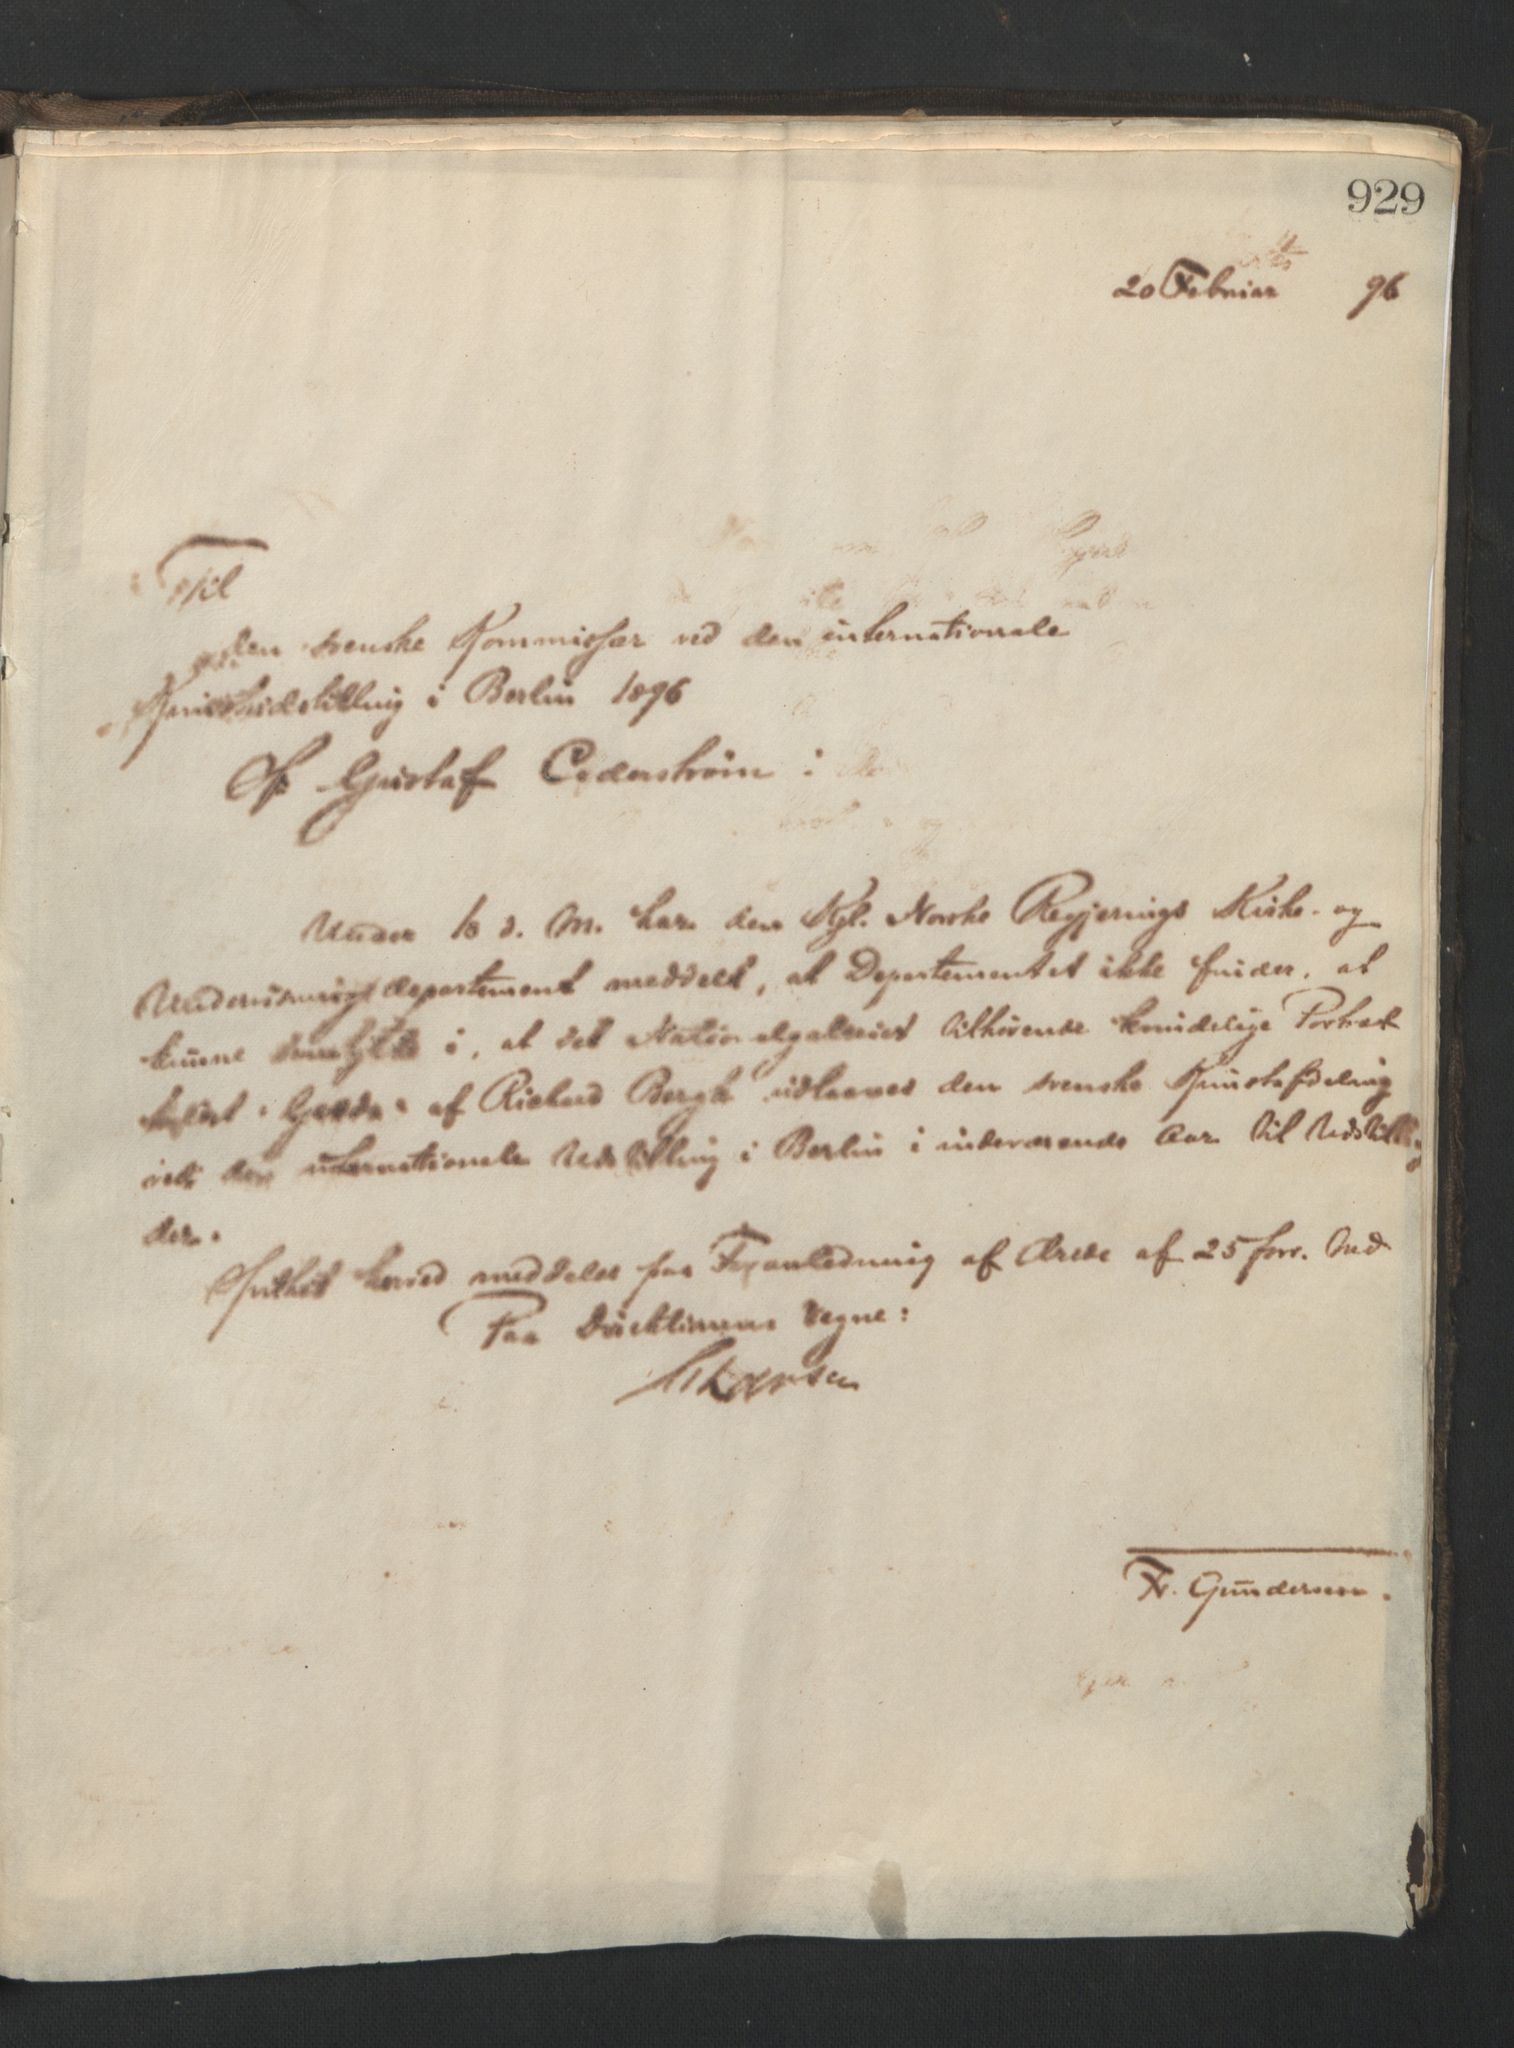 929
20 Februar 96
Til
den svenske Kommissær ved den internationale
Kunstudstilling i Berlin 1896
Hr Gustaf Cederström i
Under 18 d. M. har den Kgl. Norske Regjerings Kirke- og
Undervisningsdepartement meddelt, at Departementet ikke finder, at
kunne samtykke i, at det Nationalgalleriet tilhørende kvindelige Portræt
kaldet "Gerda" af Richard Bergh udlaanes den svenske Kunstafdeling
ved den internationale Udstilling i Berlin i indeværende Aar til Udstilling
der.
Hvilket herved meddeles paa Foranledning af Ærede af 25 forr. Md
Paa Direktionens Vegne:
Fr. Gundersen.